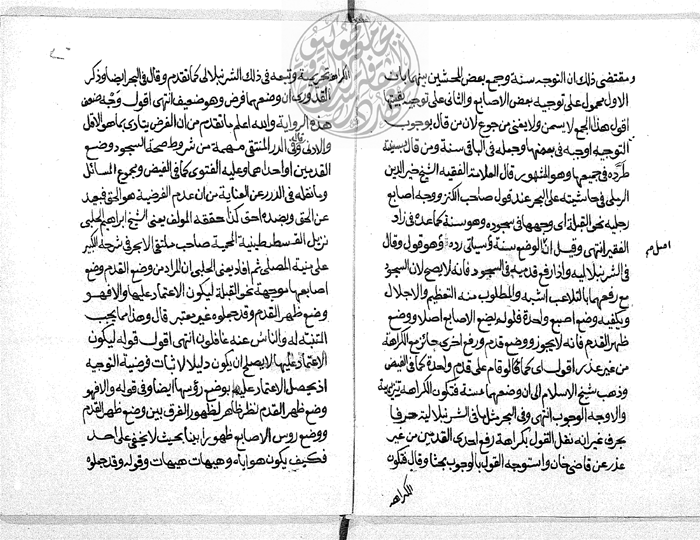 ومقتضى ذلك ان التوجه سنة وجمع بعض المحشين بينهما بان
الاول محمول على توجيه بعض الاصابع والثاني على توجيه بقيتها
اقول هذا الجمع لا يسمن ولا يغني من جوع لان من قال بوجوب
التوجيه اوجبه في بعضها وجعله في الباقي سنة ومن قال بسنيته
طرده في جميعها وهو المشهور قال العلامة الفقيه الشيخ خير الدين
الرملي في حاشيته على البحر عند قول صاحب الكنز ووجه اصابع
رجليه نحو القبلة اى وجهها في سجوده وهو سنة كما عده في زاد
الفقير انتهى وقيل ان الوضع سنة وسياتي رده وهو قوله وقال
في الشرنبلالية واذا رفع قدميه في السجود فانه لا يصح لان السجود
مع رفعهما بالتلاعب اشبه والمطلوب منه التعظيم والاجلال
ويكفيه وضع اصبع واحدة فلو لم يضع الاصابع اصلا ووضع
ظهر القدم فانه لا يجوز ووضع قدم ورفع اخرى جائز مع الكراهة
من غير عذر اقول اى كما لو قام على قدم واحدة كما في الفيض
وذهب شيخ الاسلام الى ان وضعهما سنة فتكون الكراهة تنزيهية
والاوجه الوجوب انتهى وفي البحر مثل ما في الشرنبلالية حرفا
بحرف غير انه نقل القول بكراهة رفع احدى القدمين من غير
عذر عن قاضي خان واستوجه القول بالوجوب بحثا وقال فتكون
الكراهة
الكراهة تحريمية وتبعه في ذلك الشرنبلالى كما تقدم وقال في البحر ايضا وذكر
القدوري ان وضعهما فرض وهو ضعيف انتهى اقول وجه ضعف
هذه الرواية والله اعلم ما تقدم من ان الفرض يتادى بما هو الاقل
والادنى وفي الدر المنتقى مهمة من شروط صحة السجود وضع
القدمين او احدهما وعليه الفتوى كما في الفيض ومجموع المسائل
وما نقله في الدرر عن العناية من ان عدم الفرضية هو الحق فبعيد
عن الحق وبضده احق كذا حققه المولف يعني الشيخ ابراهيم الحلبي
نزيل القسطنطينية المحمية صاحب ملتقى الابحر في شرحه الكبير
على منية المصلى ثم افاد يعني الحلبي ان المراد من وضع القدم وضع
اصابعها موجهة نحو القبلة ليكون الاعتماد عليها والا فهو
وضع ظهر القدم وقد جعلوه غير معتبر قال وهذا مما يجب
التنبه له والناس عنه غافلون انتهى اقول قوله ليكون
الاعتماد عليها لا يصلح ان يكون دليلا لاثبات فرضية التوجه
اذ يحصل الاعتماد عليها بوضع رؤسها ايضا وفي قوله والا فهو
وضع ظهر القدم نظر ظاهر لظهور الفرق بين وضع ظهر القدم
ووضع روس الاصابع ظهورا بينا بحيث لا يخفى على احد
فكيف يكون هو اياه وهيهات هيهات وقوله وقد جعلوه